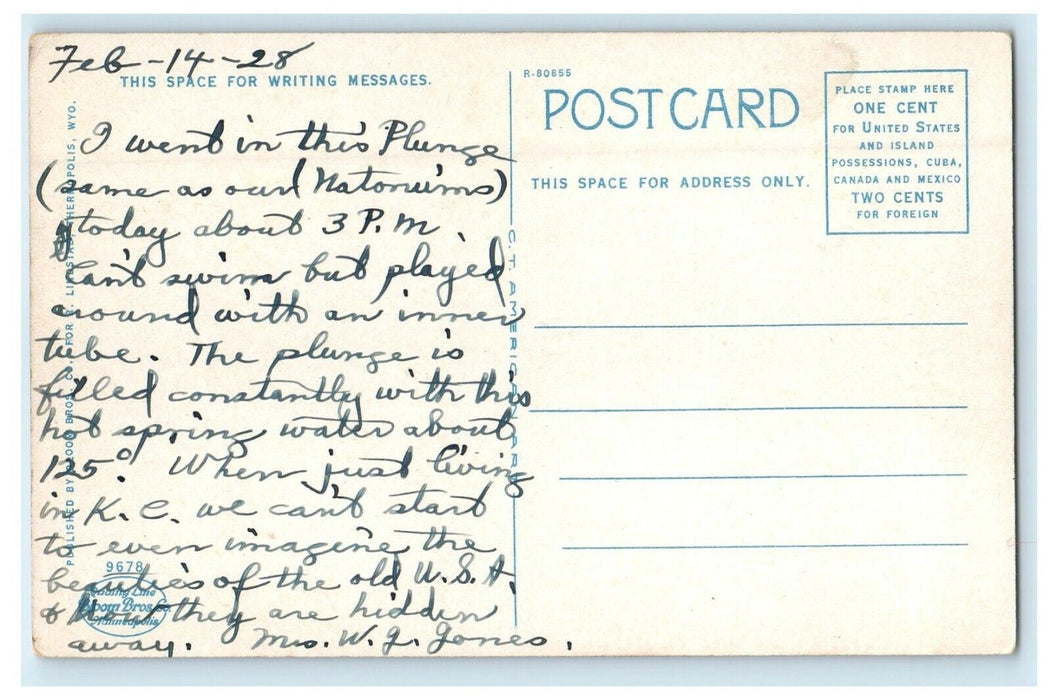 Feb-14-28
THIS SPACE FOR WRITING MESSAGES.
I went in this Plunge
(same as our Natoriums)
today about 3 P.M.
Can't swim but played
around with an inner
tube. The plunge is
filled constantly with this
hot spring water about
125°. When just living
in K.C. we can't start
to even imagine the
beauties of the old U.S.A.
& how they are hidden
away. Mrs. W. J. Jones.
PUBLISHED BY BLOOM BROS. CO. FOR THERMOPOLIS, WYO.
9678
Bloom Bros. Co.
Minneapolis
C.T. AMERICAN ART
R-80855
POST CARD
THIS SPACE FOR ADDRESS ONLY.
PLACE STAMP HERE
ONE CENT
FOR UNITED STATES
AND ISLAND
POSSESSIONS, CUBA,
CANADA AND MEXICO
TWO CENTS
FOR FOREIGN